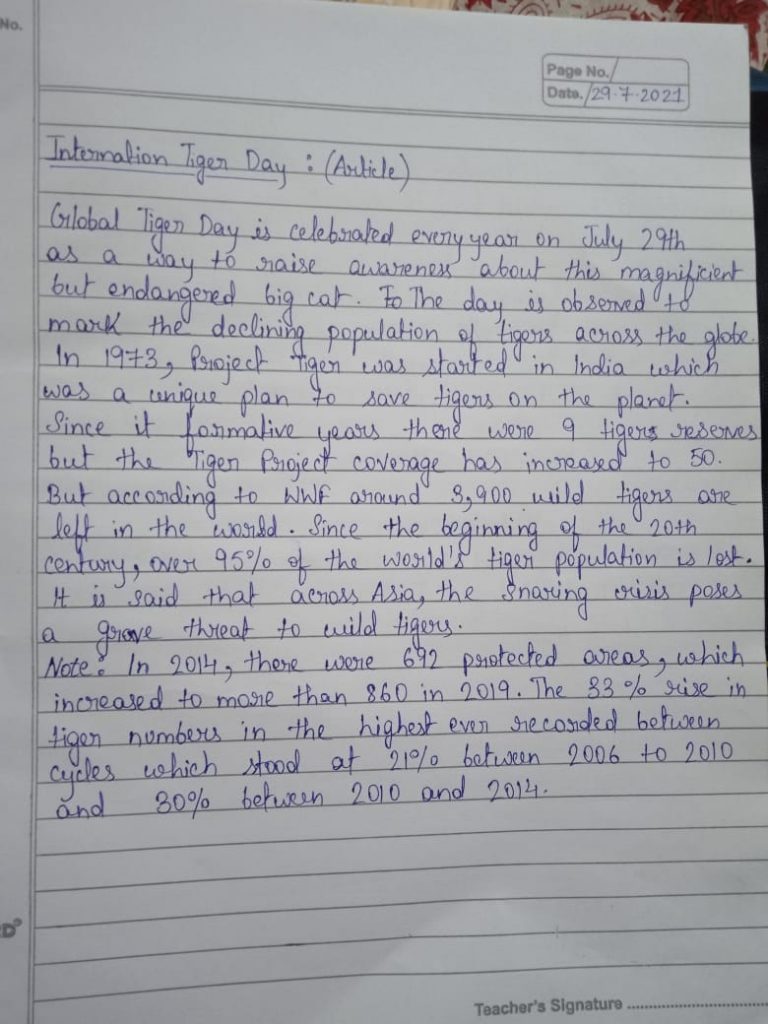 No.
Page No.
Date. 29.7.2021
Internation Tiger Day : (Article)
Global Tiger Day is celebrated every year on July 29th
as a way to raise awareness about this magnificient
but endangered big cat. To The day is observed to
mark the declining population of tigers across the globe.
In 1973, Project Tiger was started in India which
was a unique plan to save tigers on the planet.
Since it formative years there were 9 tigers reserves
but the Tiger Project coverage has increased to 50.
But according to WWF around 3,900 wild tigers are
left in the world. Since the beginning of the 20th
century, over 95% of the world's tiger population is lost.
It is said that across Asia, the snaring crisis poses
a grave threat to wild tigers.
Note: In 2014, there were 692 protected areas, which
increased to more than 860 in 2019. The 33% rise in
tiger numbers in the highest ever recorded between
cycles which stood at 21% between 2006 to 2010
and 30% between 2010 and 2014.
Teacher's Signature